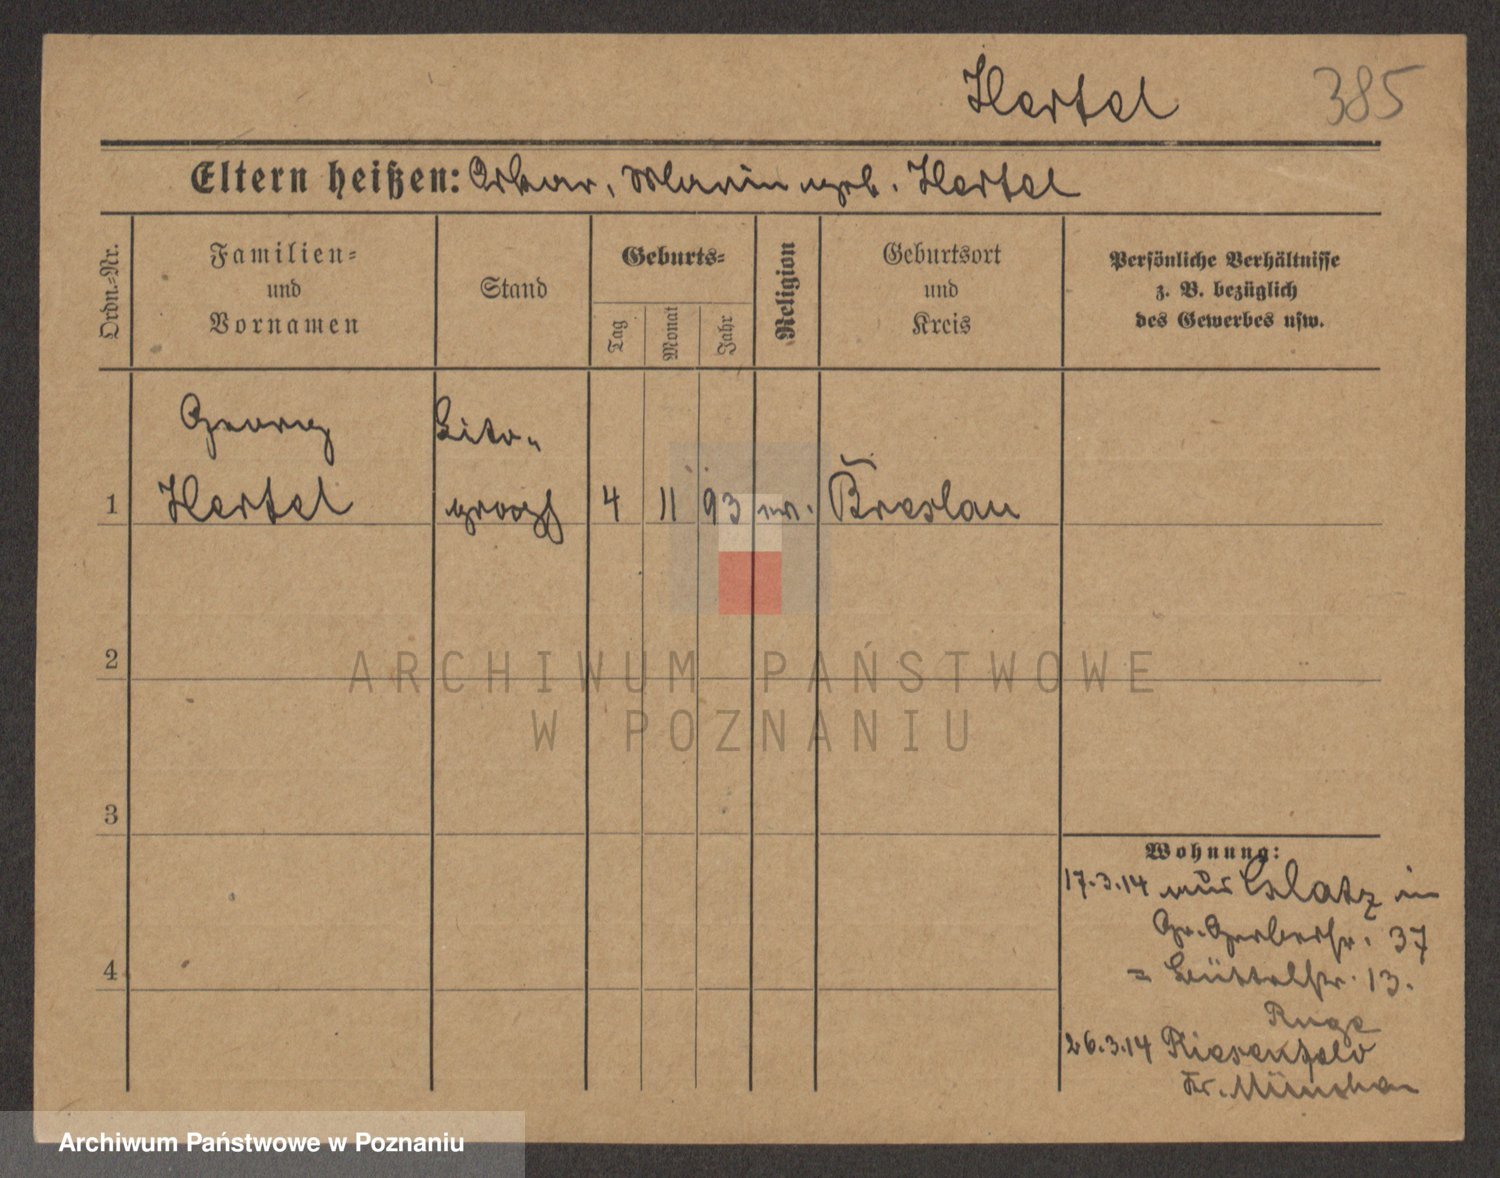 Hertel 385
Eltern heißen: Oskar, Marie geb. Hertel
Ordn.-Nr.
Familien-
und
Vornamen
Stand
Geburts-
Tag
Monat
Jahr
Religion
Geburtsort
und
Kreis
Persönliche Verhältnisse
z. B. bezüglich
des Gewerbes usw.
Georg Lito-
1 Hertel graph 4 11 93 ev. Breslau
2
3
4
Wohnung:
17.3.14 aus Glatz in
Gr. Gerberstr. 37
= Büttelstr. 13.
Ruge
26.3.14 Riesenfeld
Kr. München
ARCHIWUM PAŃSTWOWE
W POZNANIU
Archiwum Państwowe w Poznaniu